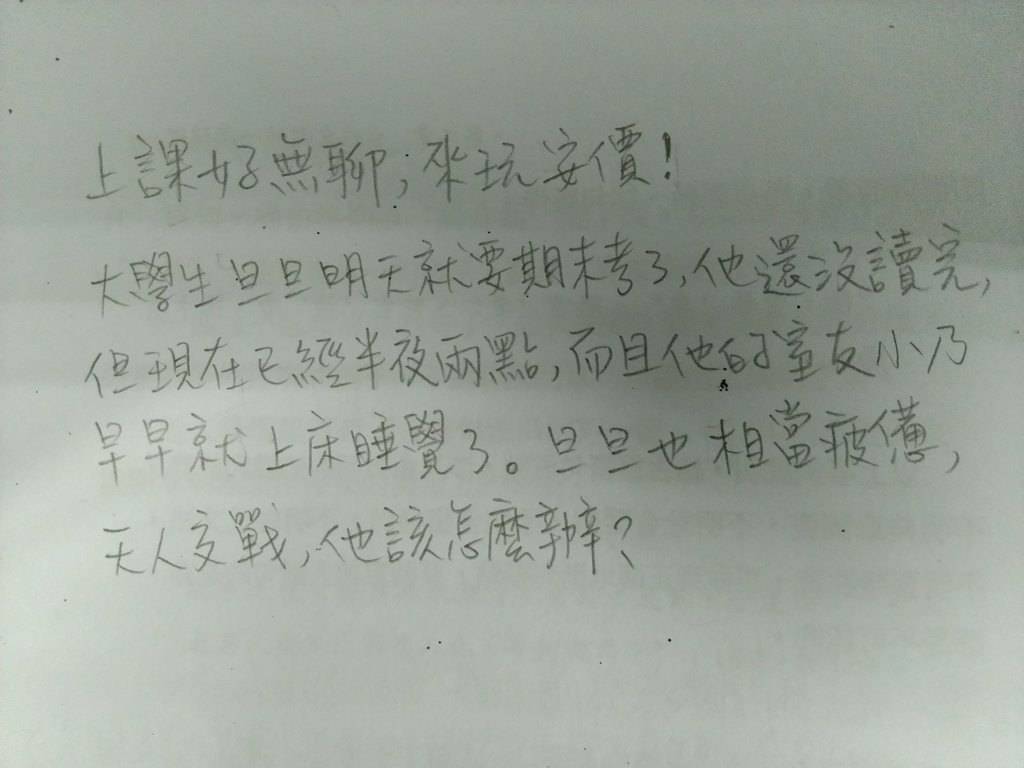 上課好無聊,來玩安價!
大學生旦旦明天就要期末考了,他還沒讀完,
但現在已經半夜兩點,而且他的室友小乃
早早就上床睡覺了。旦旦也相當疲憊,
天人交戰,他該怎麼辦?